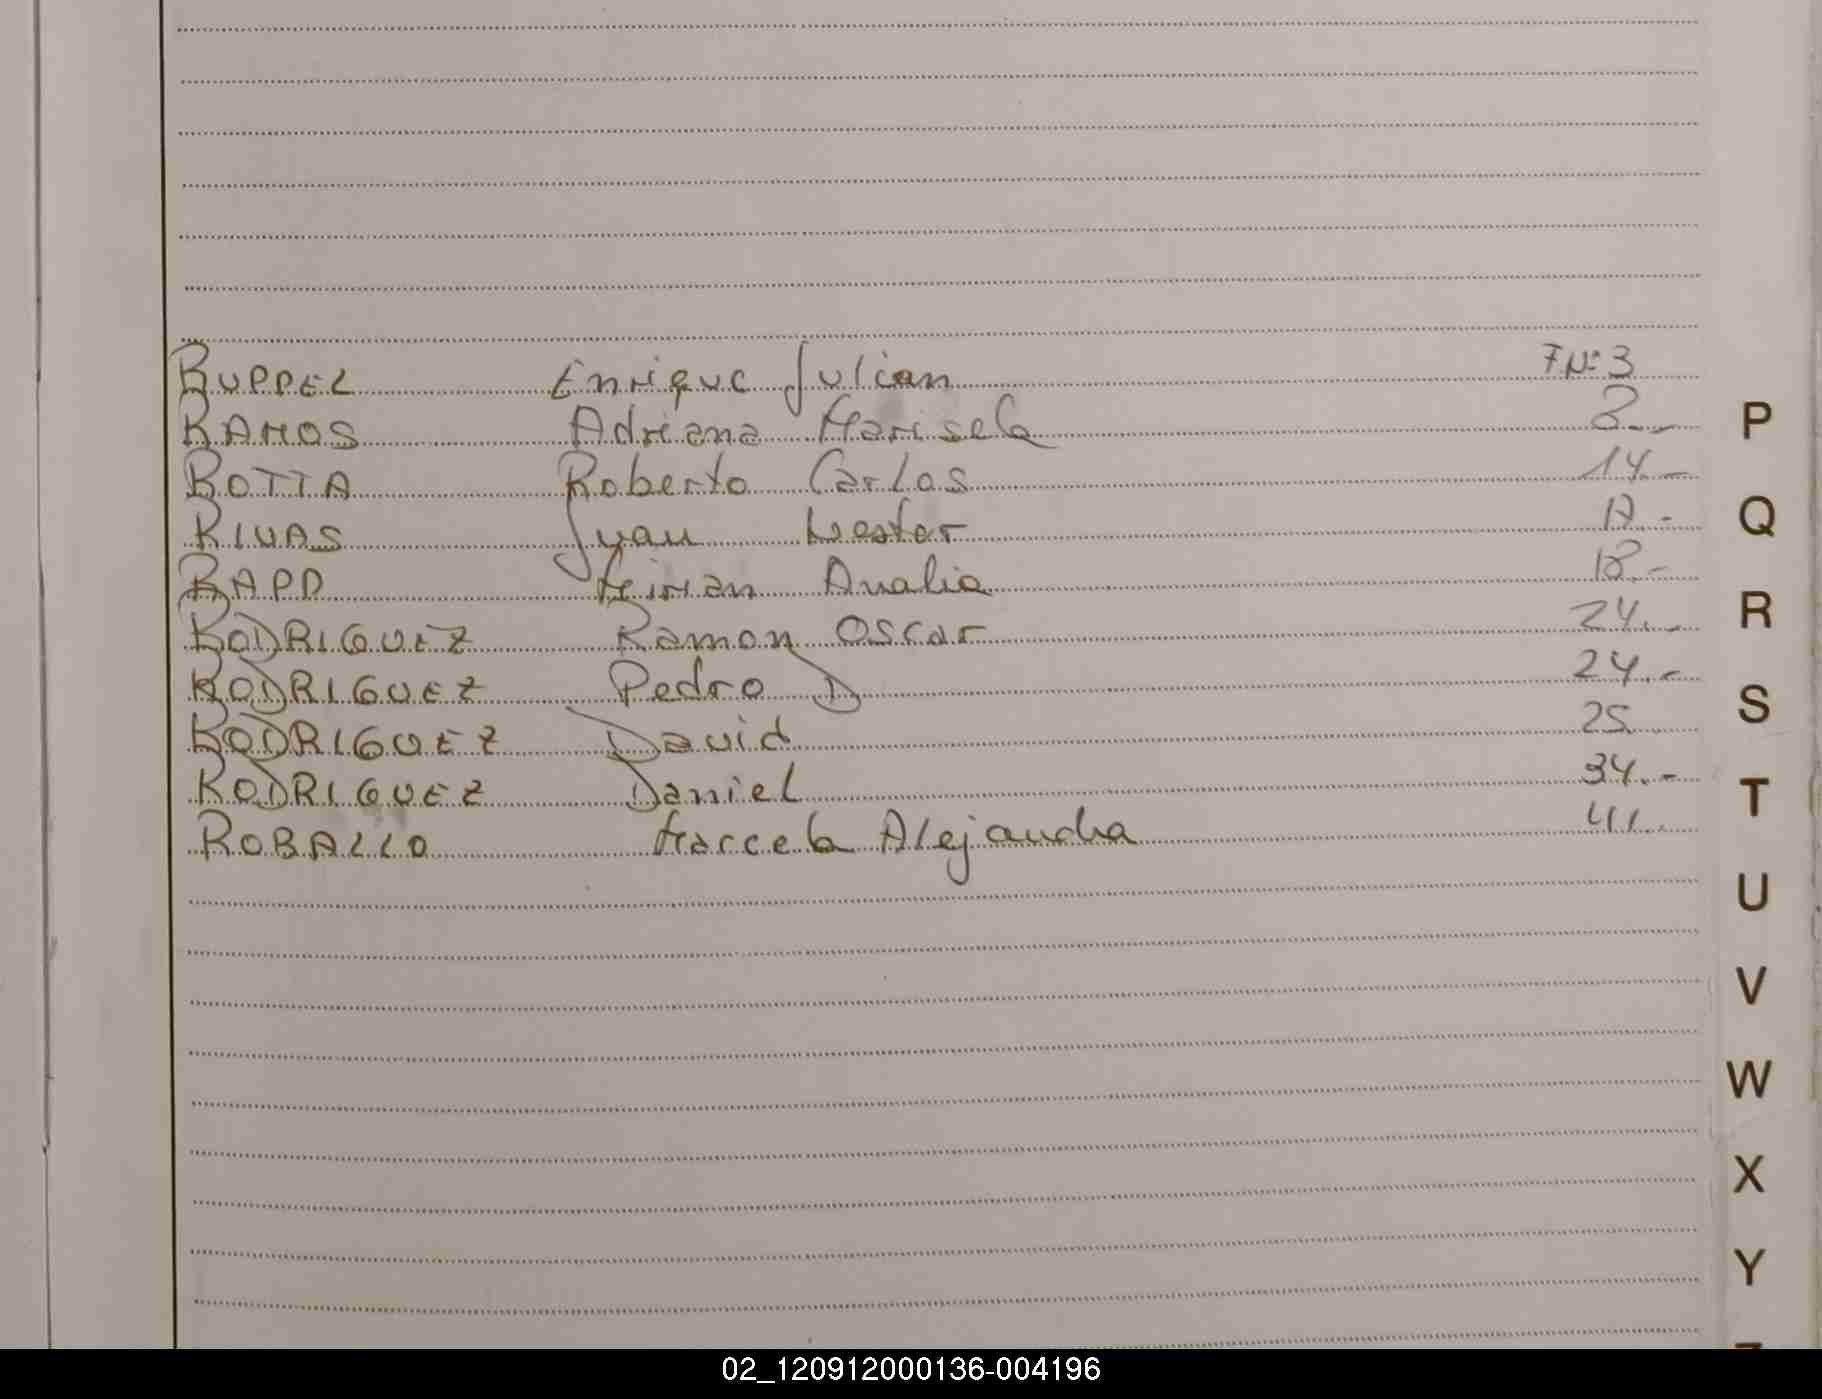 RUPPEL Enrique Julian Fº Nº 3
RAMOS Adriana Marisela 8.-
ROTTA Roberto Carlos 14.-
RIVAS Juan Nestor
RAPP Mirian Analia 18.-
RODRIGUEZ Ramon Oscar 24.-
RODRIGUEZ Pedro D 24.-
RODRIGUEZ David 25
RODRIGUEZ Daniel 34.-
ROBALLO Marcela Alejandra 41.
P
Q
R
S
T
U
V
W
X
Y
Z
02_120912000136-004196